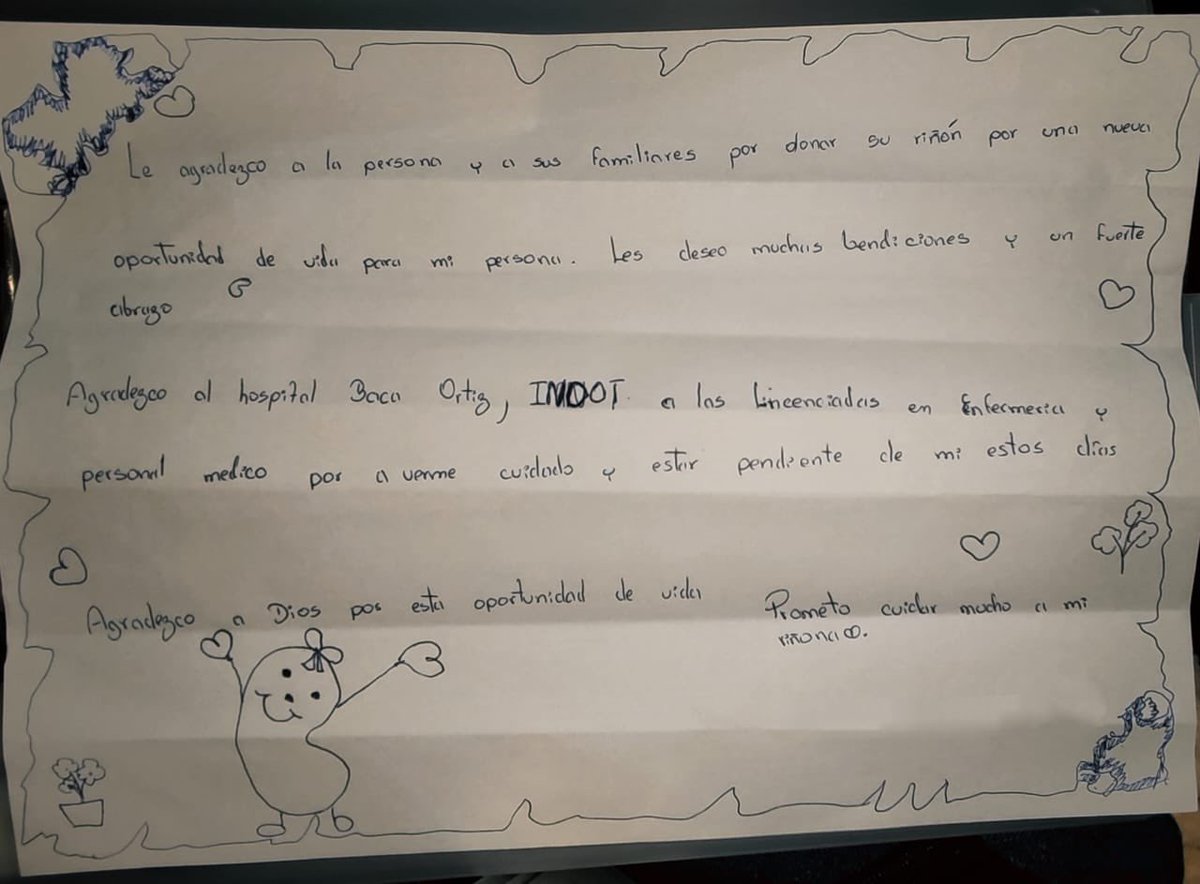 Le agradezco a la persona y a sus familiares por donar su riñón por una nueva
oportunidad de vida para mi persona. Les deseo muchas bendiciones y un fuerte
abrazo
Agradezco al hospital Baca Ortiz, INDOT a las Lincenciadas en Enfermeria y
personal medico por a verme cuidado y estar pendiente de mi estos dias
Agradezco a Dios por esta oportunidad de vida
Prometo cuidar mucho a mi
riñonao.